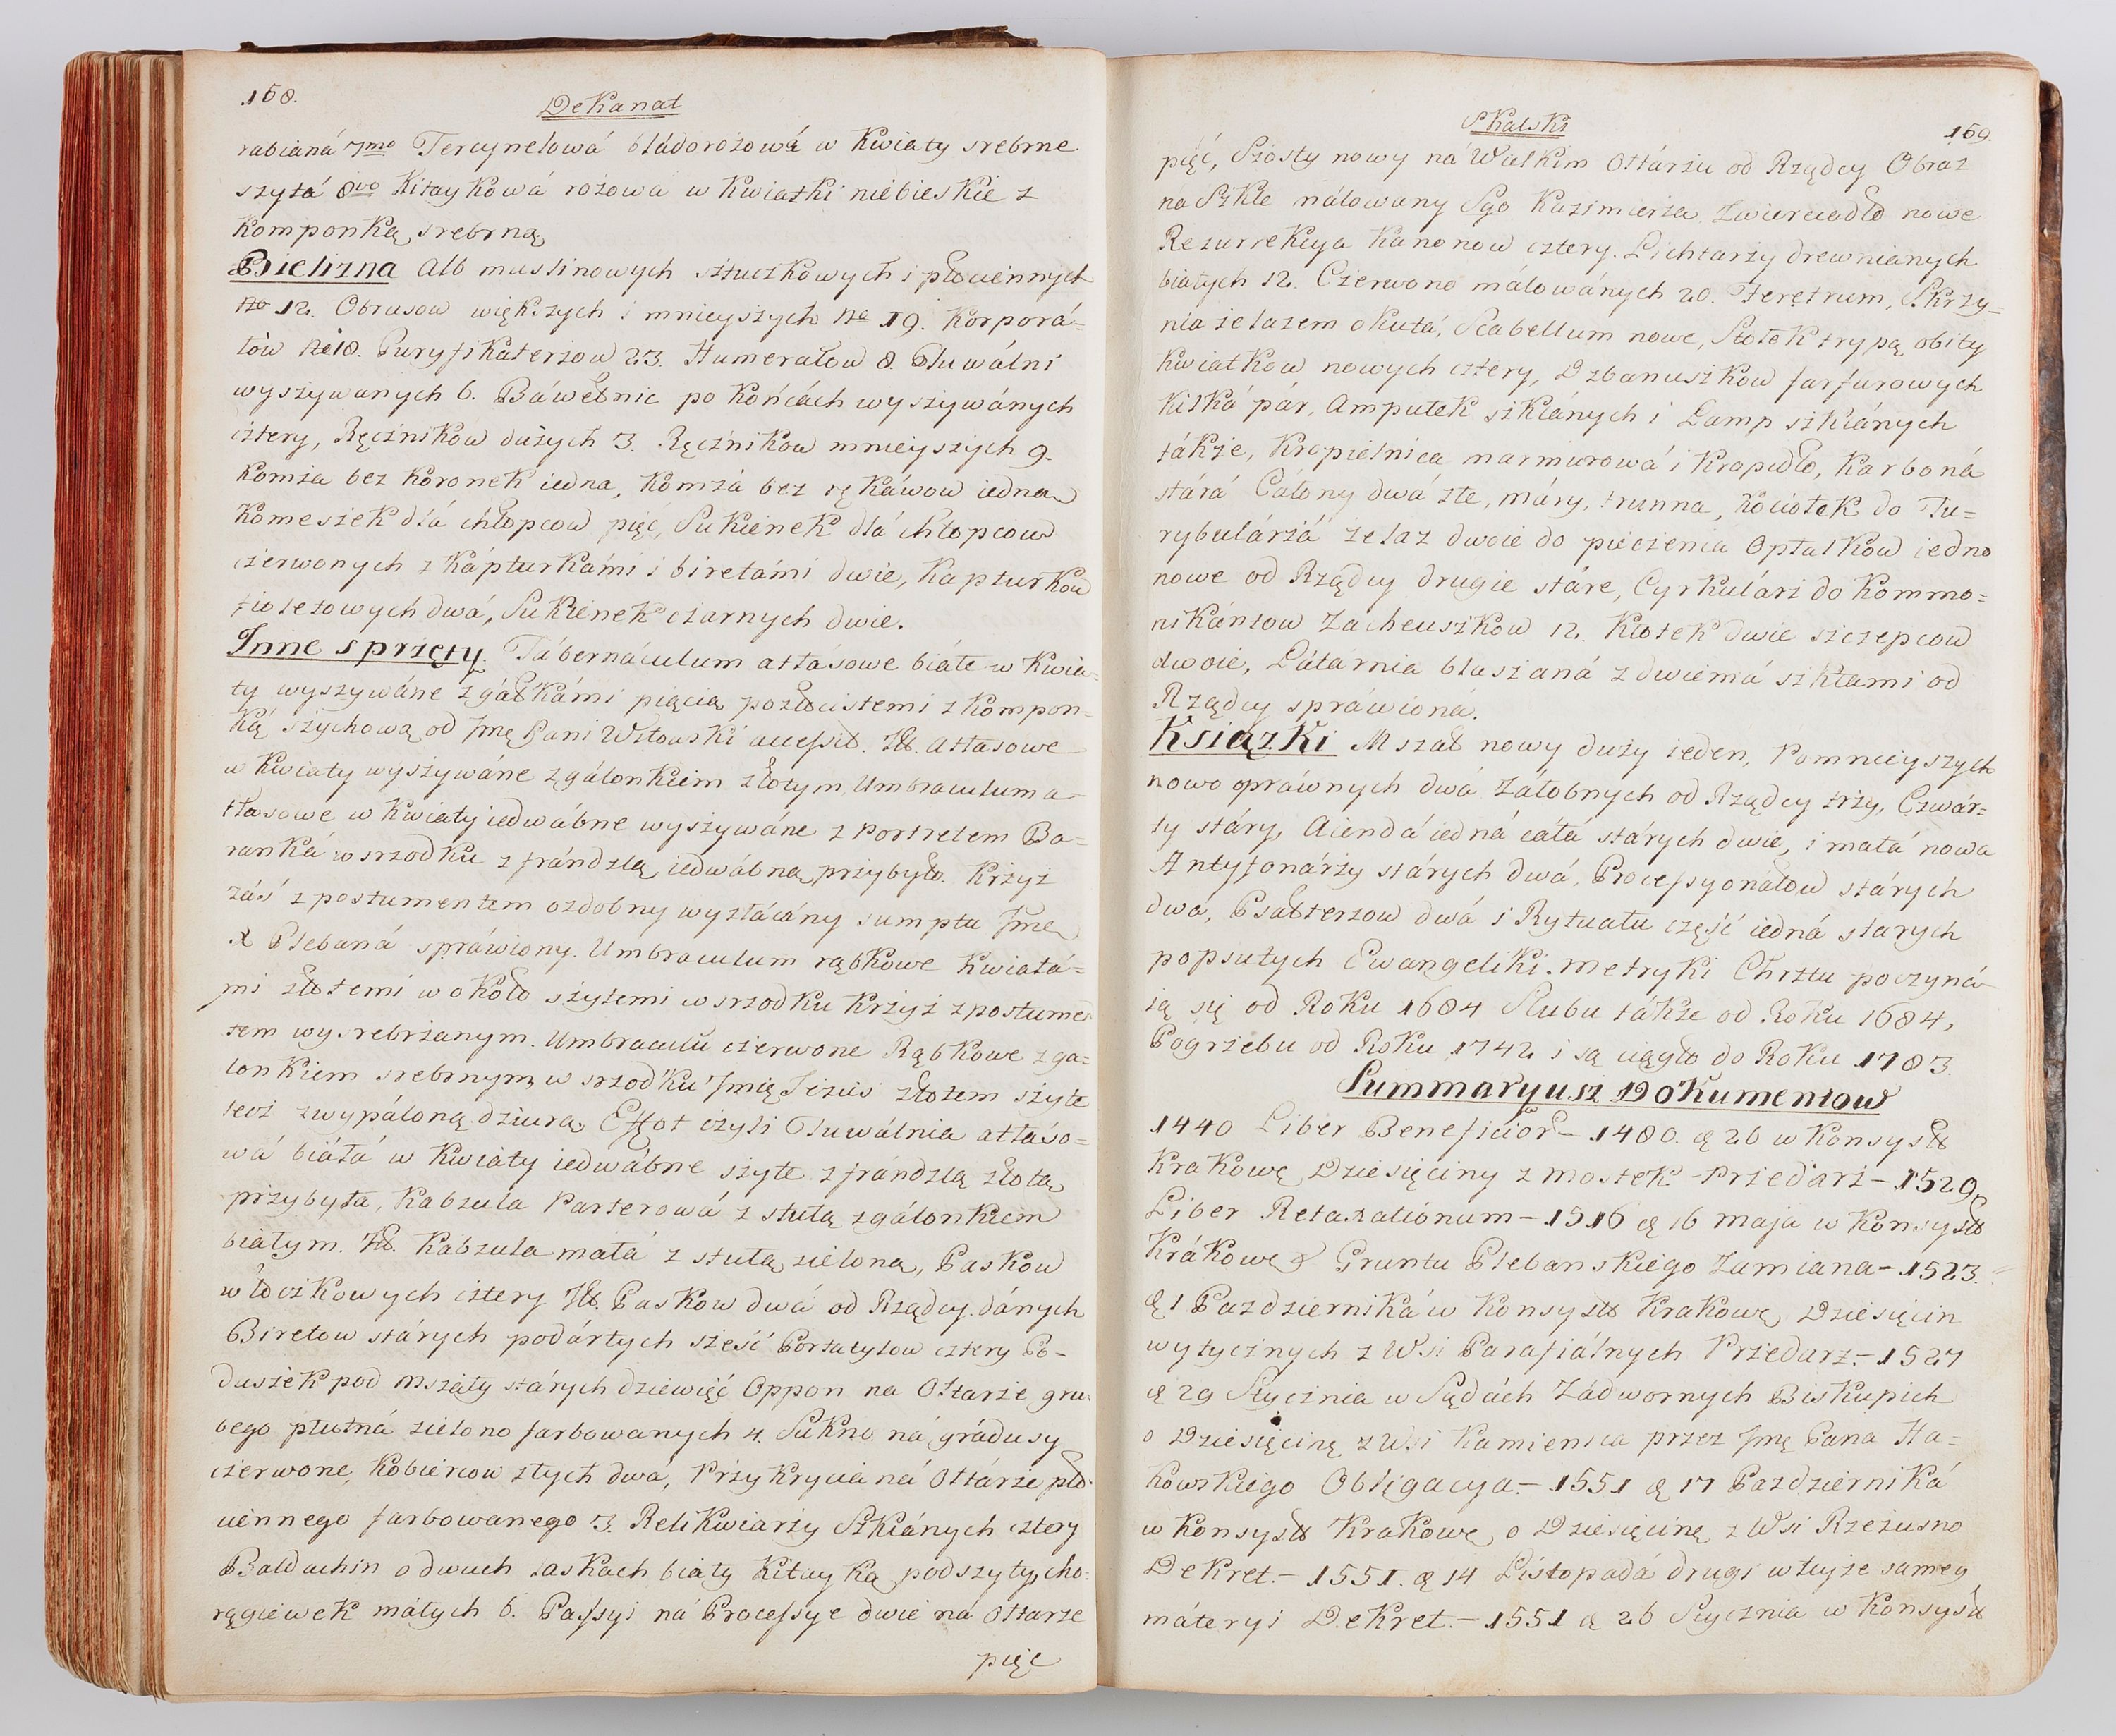 158.
Dekanat
rabianá 7mo Tercynelowá bládorożowá w Kwiaty srebrne
szytá 8vo Kitaykowá rożowa w Kwiatki niebieskie z
Komponką srebrną
Bielizna Alb muslinowych sztuczkowych i płociennych
No 12. Obrusow większych i mnieyszych No 19. Korporá=
łów No 18. Puryfikaterzow 23. Humerałow 8. Tuwálni
wyszywanych 6. Báwełnic po Końcách wyszywánych
cztery, Ręczników dużych 3. Ręczników mnieyszych 9.
Komża bez Koronek iedna, Komżá bez rękáwow iedna
Komeszek dlá chłopcow pięć, Sukienek dlá chłopcow
czerwonych z Kápturkámi i biretámi dwie, Kapturkow
fioletowych dwá, Sukienek czarnych dwie.
Inne sprzęty. Tábernáculum atłásowe białe w Kwia=
ty wyszywáne z gáłkámi pięcią pozłocistemi z Kompon=
Ką szychową od Jmę Pani Wzłowski accessit. Itt. Atłasowe
w Kwiaty wyszywáne z gálonkiem złotym Umbraculum a=
tłasowe w Kwiaty iedwábne wyszywáne z Portretem Ba=
ranká w srzodku z frándzlą iedwábną przybyło. Krzyż
záś z postumentem ozdobny wyzłácány sumptu Jme
X Plebaná spráwiony. Umbraculum rąbkowe Kwiatá=
mi złotemi w około szytemi w srzodku Krzyż z postumen
tem wysrebrzanym. Umbraculu czerwone Rąbkowe z ga=
lonkiem srebrnym, w srzodku Jmię Jezus złotem szyte
lecz z wypáloną dziurą, Effot czyli Tuwálnia atłáso=
wá biáłá w Kwiaty iedwábne szyte z frándzlą złotą
przybyła, Kabzula Parterowá z stułą z gálonkiem
białym. Itt. Kabzula małá z stułą zieloną, Paskow
włóczkowych cztery Itt. Paskow dwá od Rządcy dánych
Biretow stárych podártych sześć Portatylow cztery Po=
duszek pod Mszały stárych dziewięć Oppon na Ołtarze gru=
bego płutná zielono farbowanych 4. Sukno ná grádusy
czerwone, Kobiercow złych dwá, Przykrycia ná Ołtárze pło=
ciennego farbowanego 3. Relikwiarzy Szklánych cztery
Baldachin o dwuch laskach biały Kitayką podszyty, cho=
rągiewek máłych 6. Passyi ná Processye dwie ná Ołtarze
pięć
Skalski
159.
pięć, Szósty nowy ná Wielkim Ołtárzu od Rządcy Obraz
na Szkle málowany Sgo Kazimierza Zwierciadło nowe
Rezurrekcya Kanonow cztery. Lichtarzy drewnianych
białych 12. Czerwono málowánych 20. Feretrum, Skrzy=
nia żelazem okutá, Scabellum nowe, Stołek trypą obity
Kwiatkow nowych cztery, Dzbanuszkow farfurowych
Kilká pár, Ampułek szklánych i Lamp szklánych
tákże, Kropielnica marmurowá i Kropidło, Karboná
stárá Cáłony dwá złe, máry, trunna, Kociołek do Tu=
rybulárzá żelaz dwoie do pieczenia Opłatkow iedno
nowe od Rządcy drugie stáre, Cyrkulárz do Kommo=
nikántow Zacheuszkow 12. Kłotek dwie szczepcow
dwoie, Látárnia blaszaná z dwiemá szkłami od
Rządcy spráwioná.
Książki Mszał nowy duży ieden, Pomnieyszych
nowo opráwnych dwá Záłobnych od Rządcy trzy, Czwár=
ty stáry, Aiendá iedná cáłá stárych dwie, i małá nowa
Antyfonárzy stárych dwá, Processyonałow stárych
dwa, Psałterzow dwá i Rytuału część iedná starych
popsutych Ewangeliki. Metryki Chrztu poczyná
ią się od Roku 1684 Slubu tákże od Roku 1684,
Pogrzebu od Roku 1742 i są ciągło do Roku 1783.
Summaryusz Dokumentow
1440 Liber Beneficior – 1480. d 26 w Konsyst
Krakowę Dziesięciny z Mostek Przedarż – 1529
Liber Retaxationum – 1516 d 16 Maja w Konsyst
Krákowę Gruntu Plebanskiego Zamiana – 1523.
d 1 Pazdzierniká w Konsyst Krakowę Dziesięcin
wytycznych z Wsi Parafiálnych Przedarz – 1527
d 29 Stycznia w Sądách Zádwornych Biskupich
o Dziesięcinę z Wsi Kamienica przez Jmę Pana Ha=
kowskiego Obligacya. – 1551 d 17 Pazdzierniká
w Konsyst Krakowę o Dziesięcinę z Wsi Rzezusno
Dekret. – 1551. d 14 Listopadá drugi w tuyże samey
máteryi Dekret. – 1551 d 26 Stycznia w Konsyst